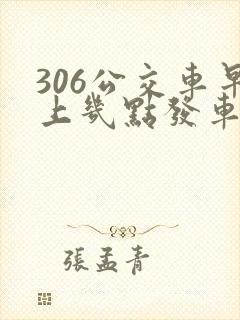 306公交車早
上幾點發車
張孟青